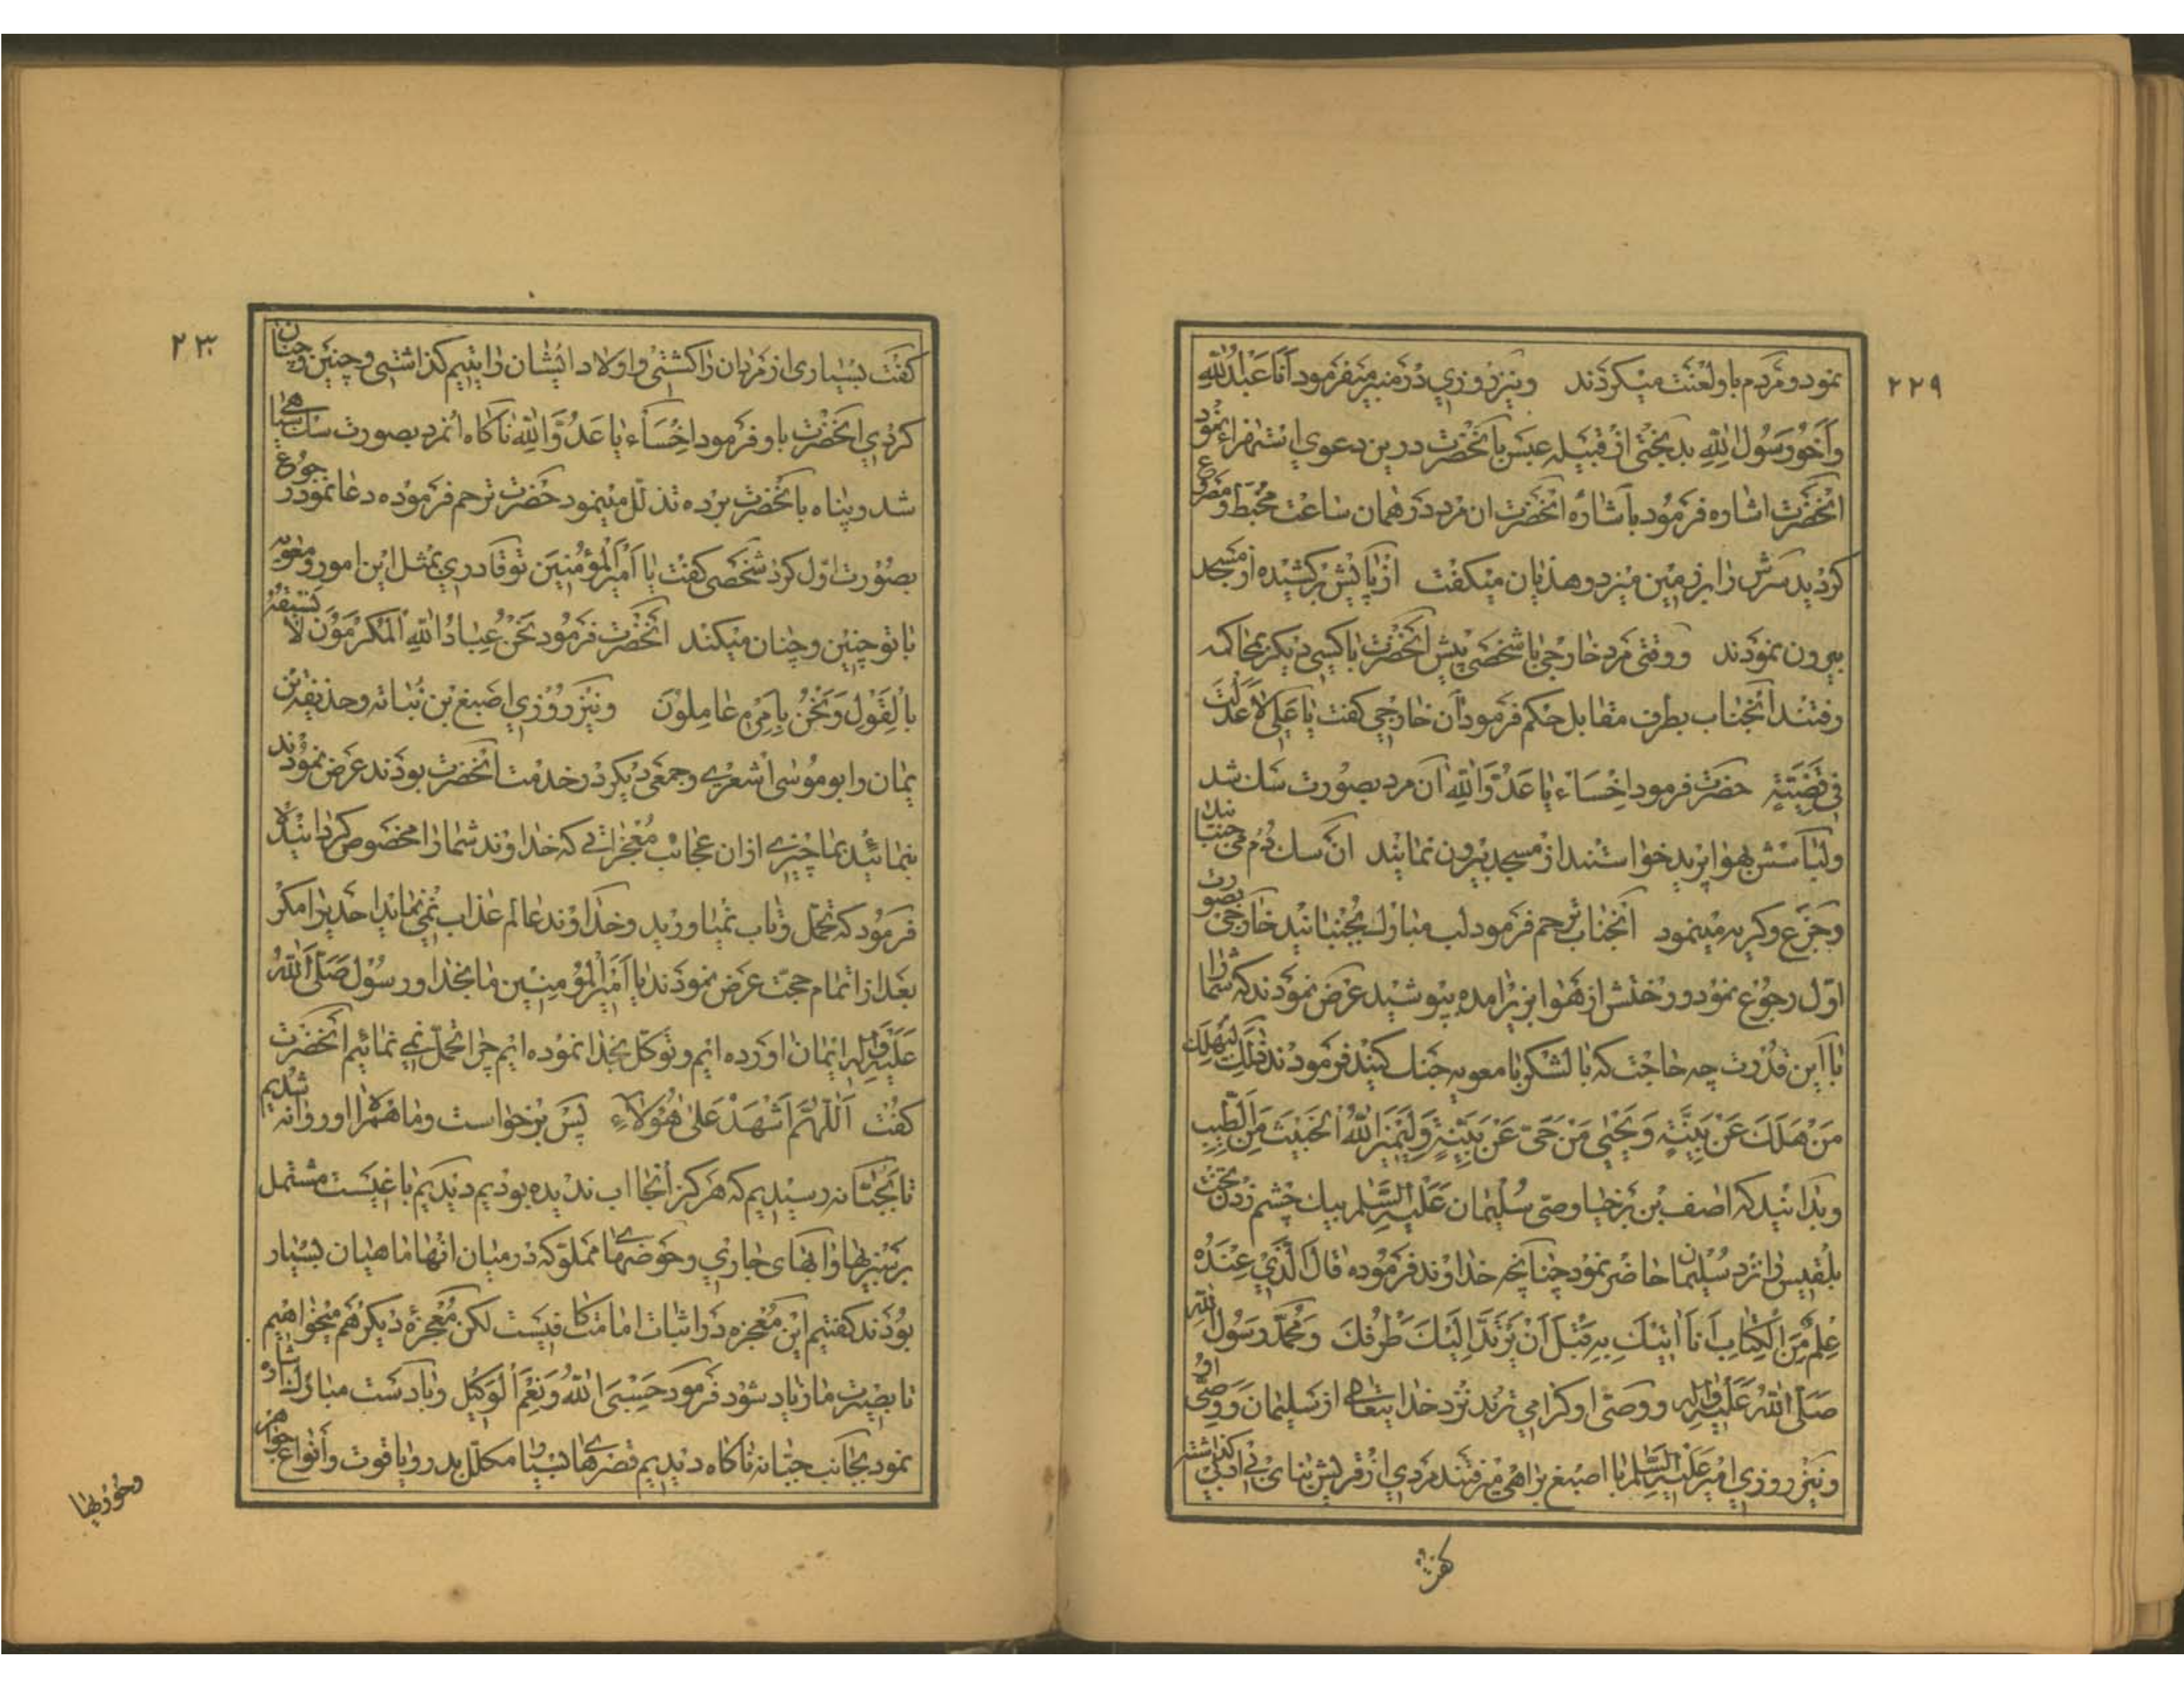 ۲۲۹
نمود و مردم باو لعنت میکردند و نیز روزی در منبر میفرمود انا عبدالله
و اخو رسول الله بدبختی از قبیله عبس بانحضرت درین دعوی استهزاء نمود
انحضرت اشاره فرمود باشاره انحضرت ان مرد در همان ساعت مخبط و مصروع
کردید سرش را بر زمین میزد و هذیان میکفت از پایش برکشیده از مسجد
بیرون نمودند و وقتی مرد خارجی با شخصی پیش انحضرت با کسی دیکر بمحاکمه
رفتند انجناب بطرف مقابل حکم فرمود آن خارجی کفت یا علی لا عدلت
فی قضیته حضرت فرمود اخساء یا عدو الله آن مرد بصورت سک شد
و لباسش بهوا پرید خواستند از مسجد بیرون نمایند ان سک دم می جنبانید
و جزع و کریه مینمود انجناب ترحم فرمود لب مبارک بجنبانید خارجی بصورت
اول رجوع نمود و رختش از هوا بزیر امده پوشید عرض نمودند که شما را
با این قدرت چه حاجت که با لشکر با معویه جنک کنید فرمودند ذلک لیهلک
من هلک عن بینة و یحیی من حی عن بینة و لیمیز الله الخبیث من الطیب
و بدانید که اصف بن برخیا وصی سلیمان علیه السلام بیک چشم زدن تخت
بلقیس را نزد سلیمان حاضر نمود چنانچه خداوند فرموده قال الذی عنده
علم من الکتاب انا اتیک به قبل ان یرتد الیک طرفک و محمد رسول الله
صلی الله علیه و اله و وصی او کرامی ترند نزد خدایتعالی از سلیمان و وصی او
و نیز روزی امیر علیه السلام با اصبغ براهی میرفتند مردی از قریش بنای بی ادبی کذاشته
کفت
۲۳۰
کفت بسیاری از مردان را کشتی و اولاد ایشان را یتیم کذاشتی و چنین و چنان
کردی انحضرت باو فرمود اخساء یا عدو الله ناکاه انمرد بصورت سک سیاهی
شد و پناه بانحضرت برده تذلل مینمود حضرت ترحم فرموده دعا نمود رجوع
بصورت اول کرد شخصی کفت یا امیر المؤمنین تو قادری بمثل این امور و معویه
با تو چنین و چنان میکند انحضرت فرمود نحن عباد الله المکرمون لا نسبقه
بالقول و نحن بامره عاملون و نیز روزی اصبغ بن نباته و حذیفه بن
یمان و ابو موسی اشعری و جمعی دیکر در خدمت انحضرت بودند عرض نمودند
بنمائید بما چیزی از ان عجائب معجزاتی که خداوند شما را مخصوص کردانیده
فرمود که تحمل و تاب نمیاورید و خداوند عالم عذاب نمی نماید احدیرا مکر
بعد از اتمام حجت عرض نمودند یا امیر المؤمنین ما بخدا و رسول صلی الله
علیه و اله ایمان اورده ایم و توکل بخدا نموده ایم چرا تحمل نمی نمائیم انحضرت
کفت اللهم اشهد علی هؤلاء پس برخواست و ما همراه او روانه شدیم
تا بجبانه رسیدیم که هرکز انجا اب ندیده بودیم دیدیم باغیست مشتمل
بر سبزیها و ابهای جاری و حوضهای مملو که در میان انها ماهیان بسیار
بودند کفتیم این معجزه در اثبات امامت کافیست لکن معجزه دیکر هم میخواهیم
تا بصیرت ما زیاد شود فرمود حسبی الله و نعم الوکیل و با دست مبارک اشاره
نمود بجانب جبانه ناکاه دیدیم قصرهای بسیار مکلل بدر و یاقوت و انواع جواهر
و حوریها